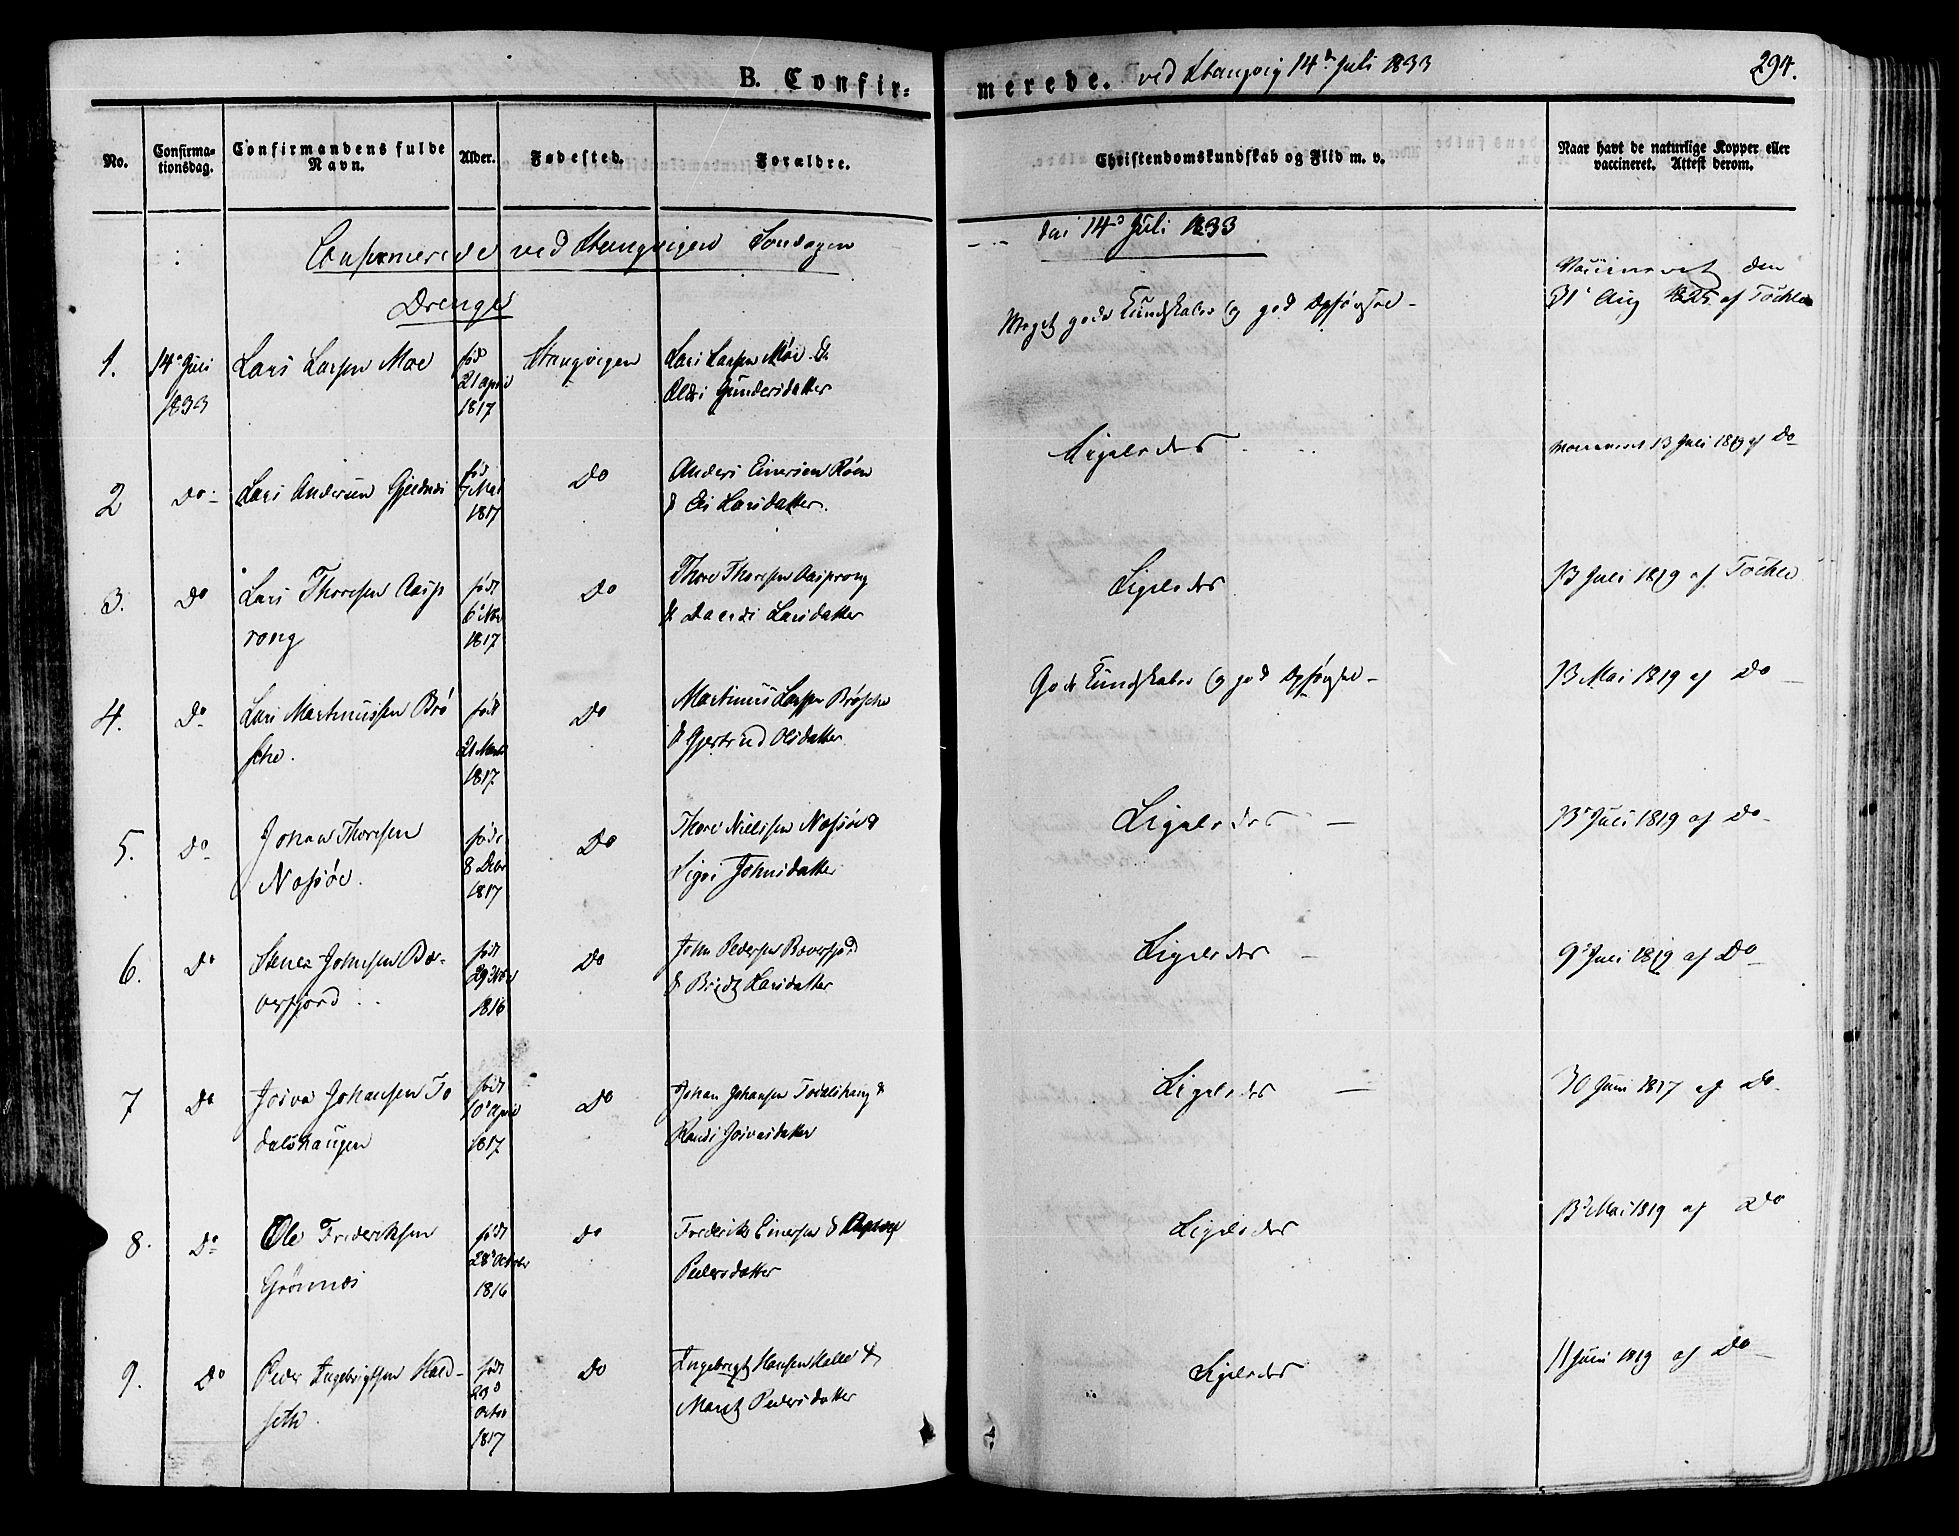 B. Confir-
merede. ved Stangvig 14d Juli 1833
294.
No.
Confirma-
tionsdag.
Confirmandens fulde
Navn.
Alder.
Fødested.
Forældre.
Christendomskundskab og Flid m. v.
Naar havt de naturlige Kopper eller
vaccineret. Attest derom.
Confirmerede ved Stangvigen Søndagen
den 14d Juli 1833
Drenge
1.
14d Juli
1833
Lars Larsen Moe
fød
21 april
1817
Stangvigen
Lars Larsen Moe &
Gundersdatter
Meget gode Kundskaber og god Opførsel -
Vaccineret den
31 Aug 1825 af
2
Do
Lars Andersen
fød
7 Mai
1817
Do
Anders Einersen
& Larsdatter.
Ligeledes
Vaccineret 13 Juli 1819 af Do
3.
Do
Lars Thoresen Aasp
rong
født
6 Nov
1817
Do
Thore Thoresen Aasprong
& Larsdatter
Ligeledes
13 Juli 1819 af
4.
Do
Lars Martinussen Brø
ske.
født
1817
Do
Martinus Larsen Brøske
& Gjertrud Olsdatter
Gode Kundskaber og god Opførsel -
13 Mai 1819 af Do
5.
Do
Johan Thoresen
født
8 Debr
1817
Do
Thore Nielsen &
Johnsdatter
Ligeledes -
13 Juli 1819 af Do
6.
Do
Johnsen Bæ-
verfjord
født
1816
Do
John Pedersen Bæverfjord
& Bridt Larsdatter
Ligeledes -
9 Juli 1819 af Do
7
Do
Johansen To
dalshaugen
født
10 April
1817
Do
Johan Johansen Todalshaug &
Randi
Ligeledes -
30 Juni 1817 af Do
8.
Do
Ole Frederiksen
Grønnæs
født
28 October
1816
Do
Frederik Einersen &
Pedersdatter
Ligeledes
13 Mai 1819 af Do
9.
Do
Peder Ingebrigtsen Hald-
seth
født
1817
Do
Ingebrigt Hansen &
Maret Pedersdatter
Ligeledes
11 Juni 1819 af Do